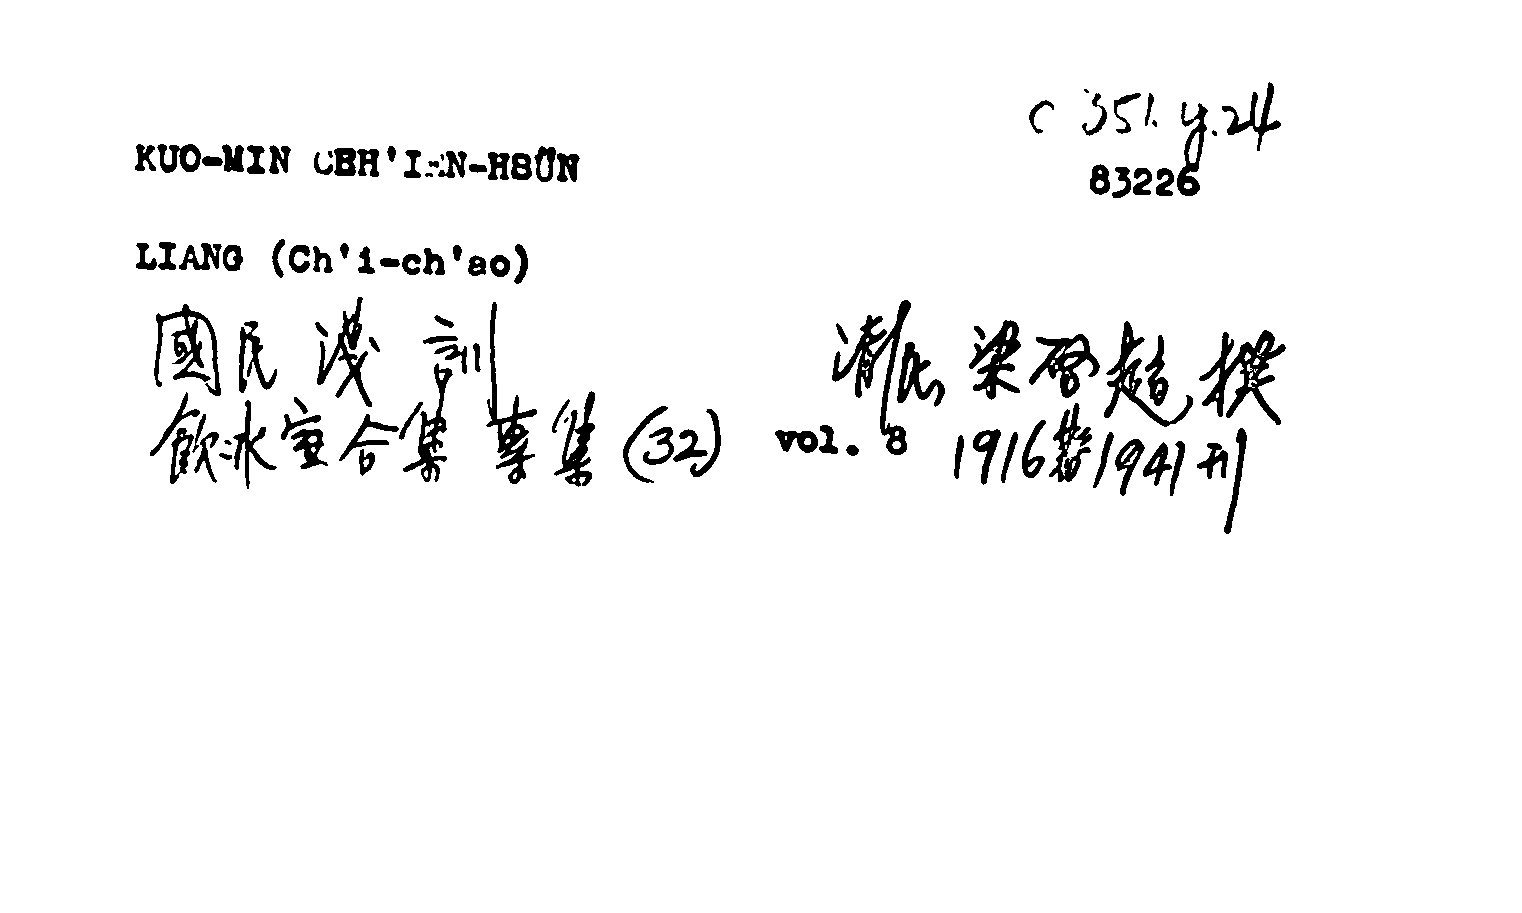 C 351. y.24
KUO-MIN CEH'IEN-HSÜN
83226
LIANG (Ch'i-ch'ao)
國民淺訓 清/民 梁啓超撰
飲冰室合集 專集 (32) vol. 8 1916著1941刊